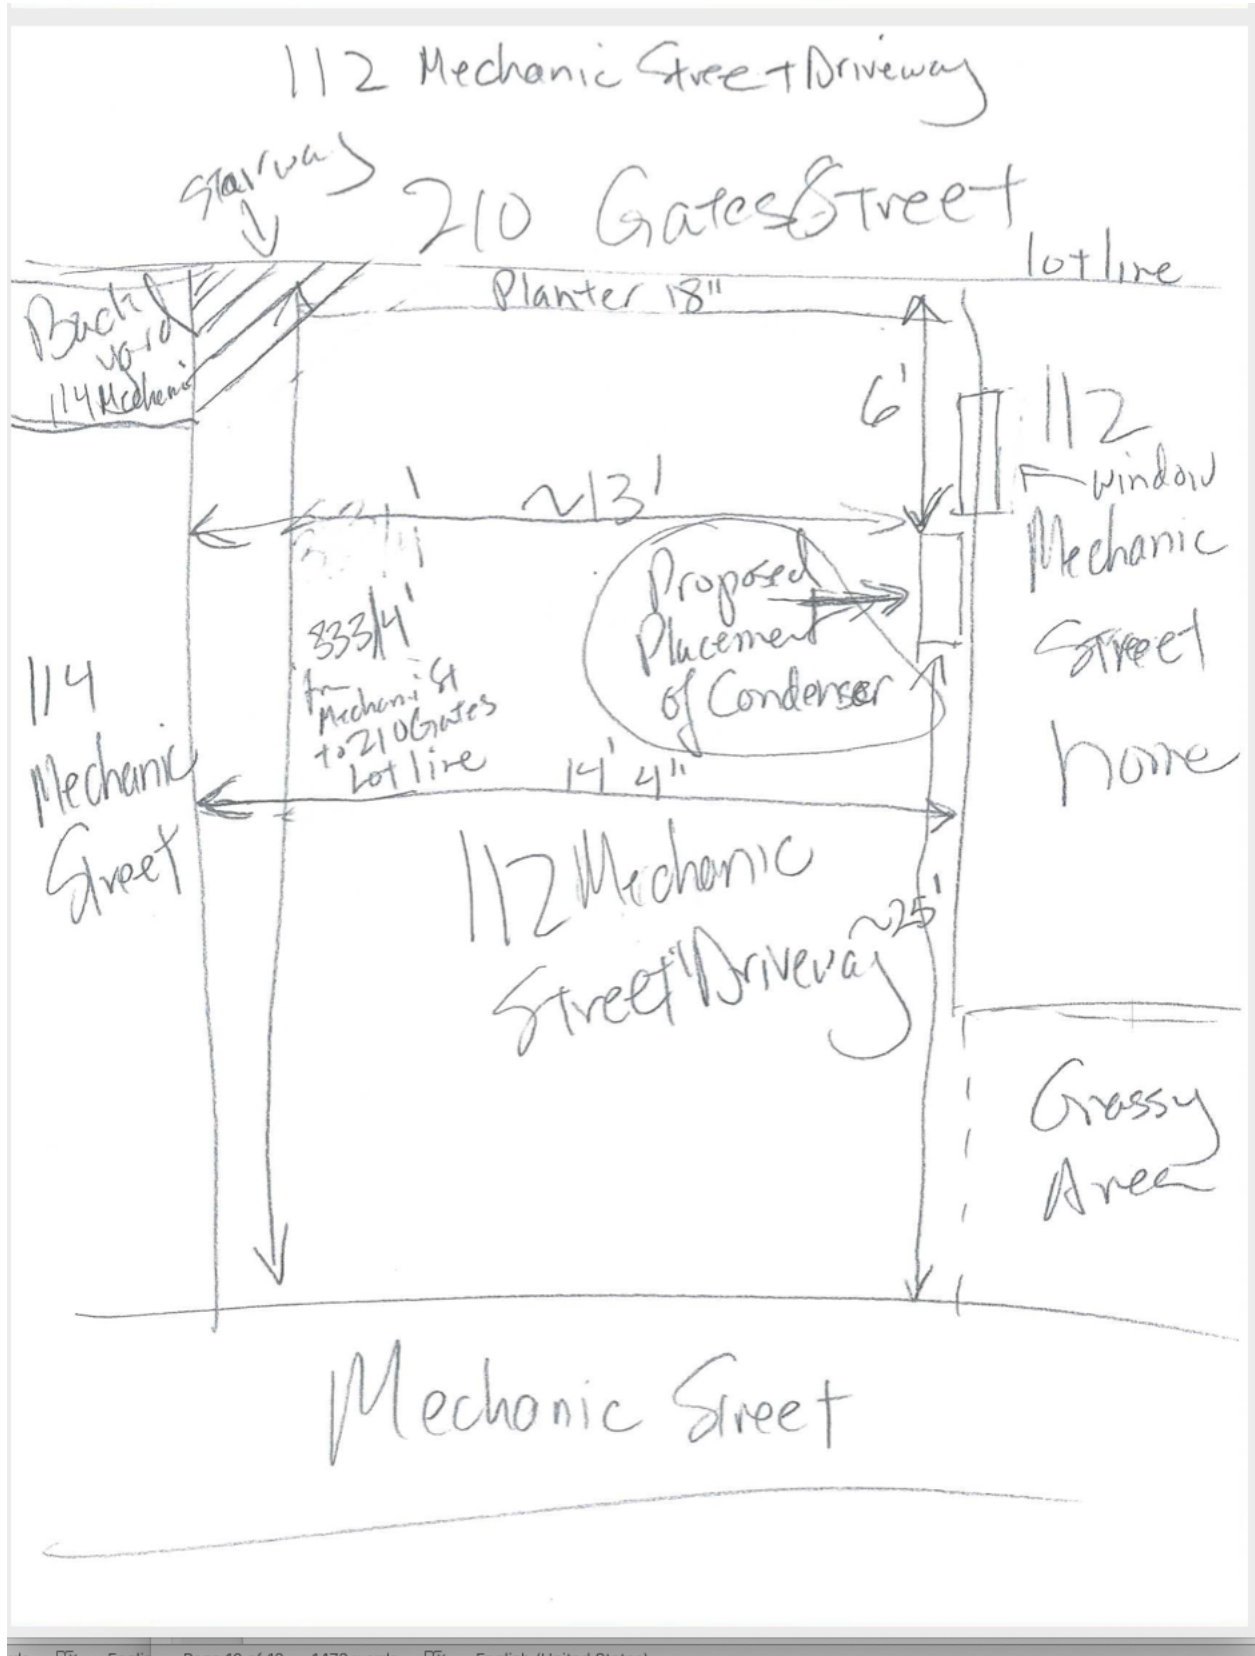 112 Mechanic Street Driveway
Stairway
210 Gates Street
lot line
Planter 18"
Back
yard
114 Mechanic
6'
112
window
Mechanic
Street
home
~13'
Proposed
Placement
of Condenser
833/4'
Mechanic St
to 210 Gates
Lot line
114
Mechanic
Street
14' 4"
112 Mechanic
Street Driveway
~25'
Grassy
Area
Mechanic Street